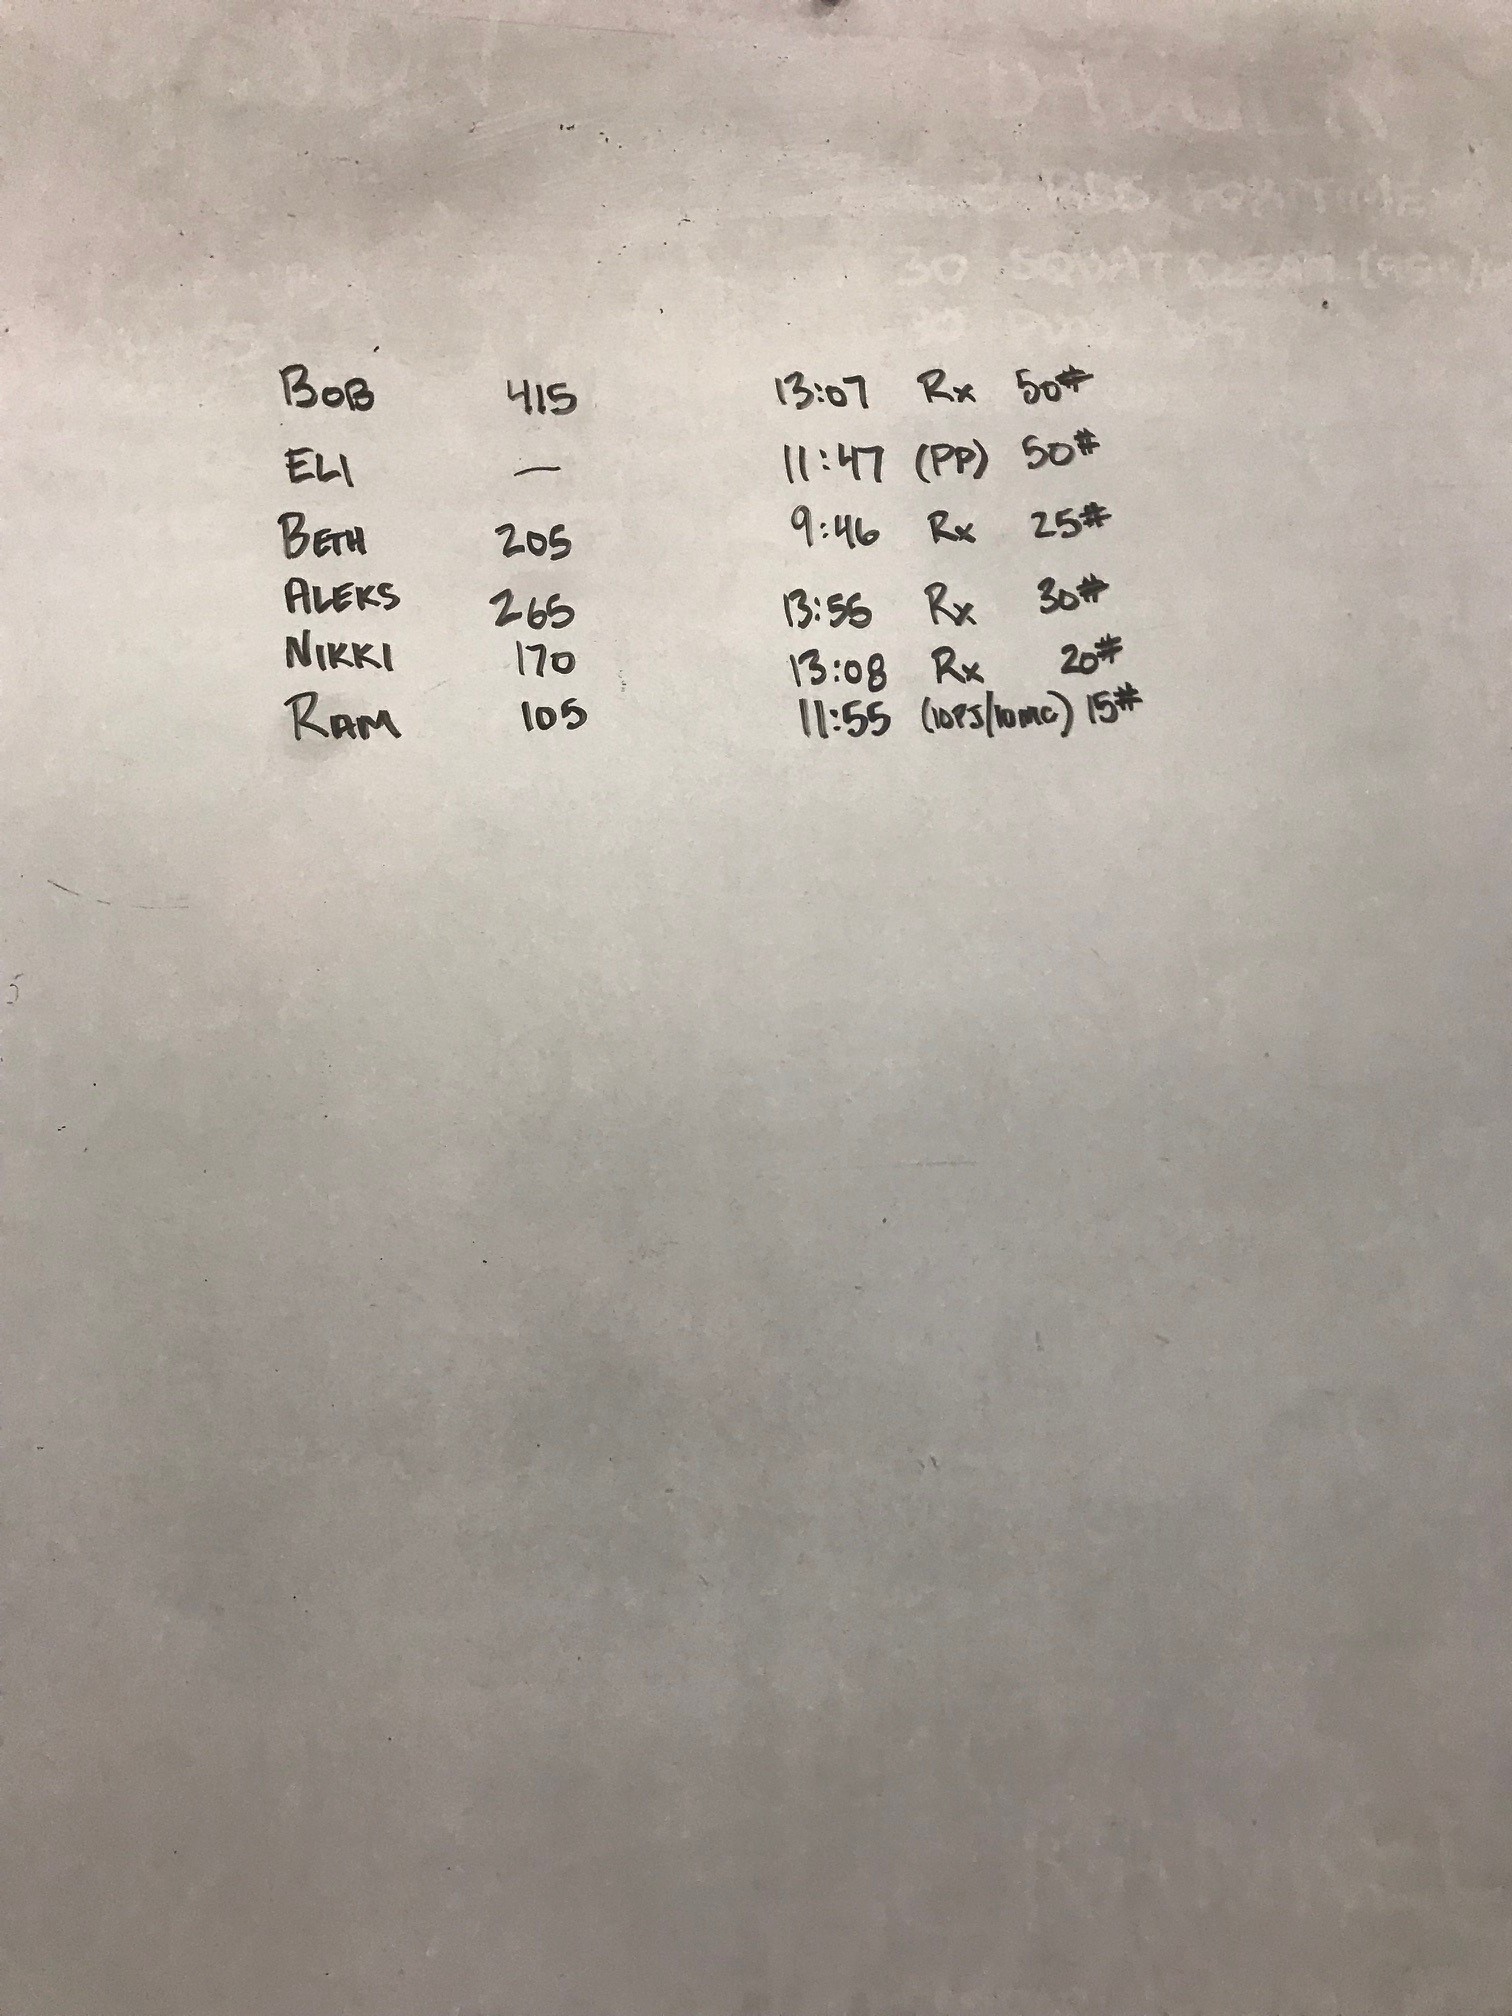 RDS FOR TIME
30 SQUAT CLEAN
BOB 415 13:07 Rx 50#
ELI — 11:47 (PP) 50#
BETH 205 9:46 Rx 25#
ALEKS 265 13:55 Rx 30#
NIKKI 170 13:08 Rx 20#
RAM 105 11:55 (10PJ/10MC) 15#